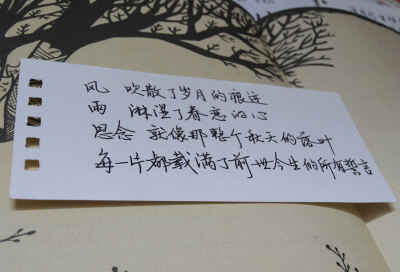 风 吹散了岁月的痕迹
雨 淋湿了眷恋的心
思念 就像那整个秋天的落叶
每一片都载满了前世今生的所有誓言